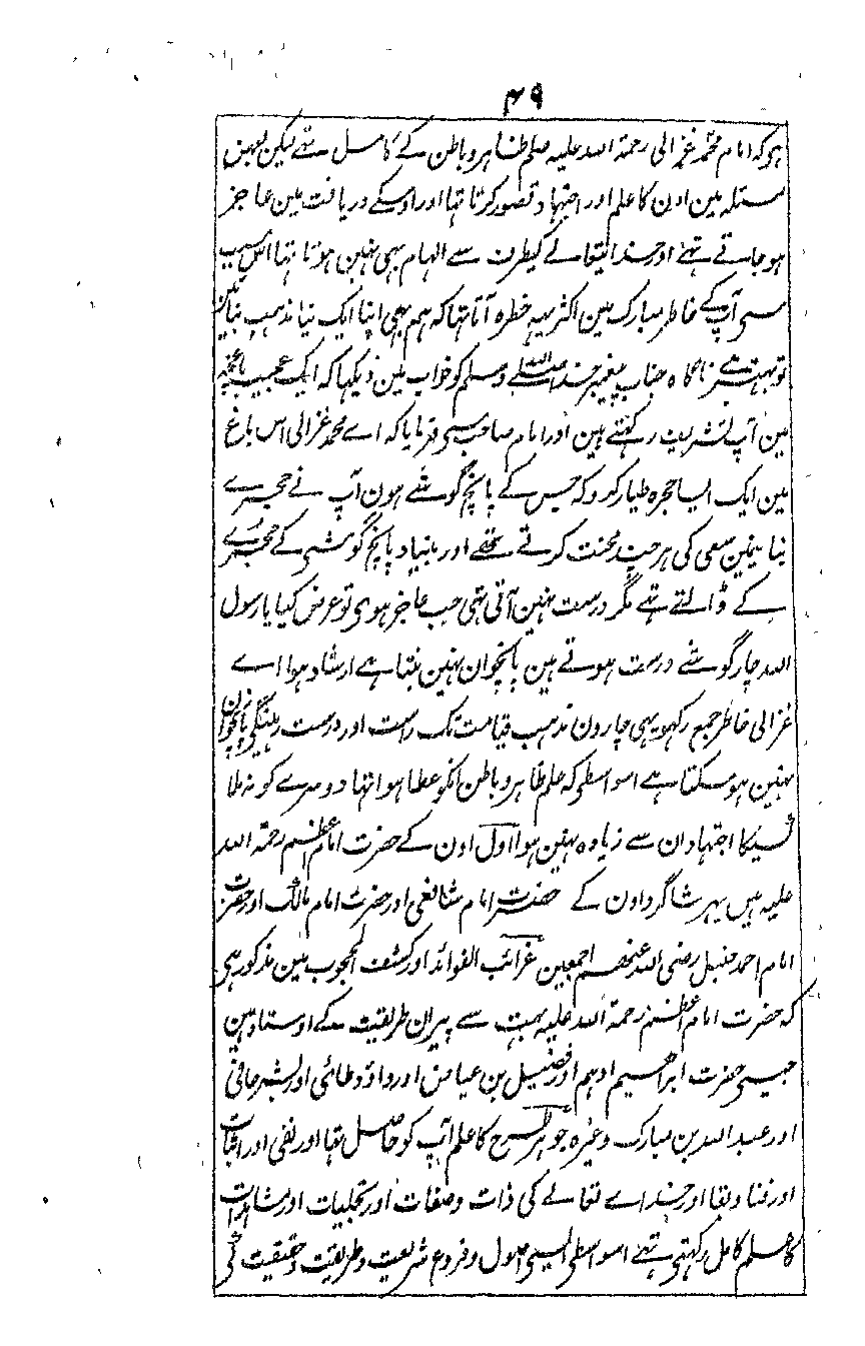 ۴۹
ہو کہ امام محمد غزالی رحمۃ اللہ علیہ علم ظاہر و باطن کے کامل تہے لیکن بعہن
مسئلہ مین اون کا علم اور اجتہاد تصور کرتا تہا اور اوسکے دریافت مین عاجز
ہو جاتے تہے اور خدایتعالے کیطرف سے الہام بہی نہین ہوتا تہا اس سبب
سی آپ کے خاطر مبارک مین اکثر یہہ خطرہ آتا تہا کہ ہم بہی اپنا ایک نیا مذہب بنائین
تو بہتر ہے ناگاہ جناب پیغمبر خدا صلے اللہ و سلم کو خواب مین دیکہا کہ ایک عجیب باغیچہ
مین آپ تشریف رکہتے ہین اور امام صاحب سی فرمایا کہ اے محمد غزالی اس باغ
مین ایک ایسا حجرہ طیار کرو کہ جس کے پانچ گوشے ہون آپ نے حجرے
بنا نیمین سعی کی ہر چند محنت کرتے تہے اور بنیاد پانچ گوشی کے حجرے
کے ڈالتے تہے مگر درست نہین آتی تہی جب عاجز ہوی تو عرض کیا یا رسول
اللہ چار گوشے درست ہوتے ہین پانچوان نہین بنتا ہے ارشاد ہوا اے
غزالی خاطر جمع رکہو یہی چارون مذہب قیامت تک راست اور درست رہینگی پانچوان
نہین ہو سکتا ہے اسواسطی کہ علم ظاہر و باطن انکو عطا ہوا تہا دوسرے کو نہ ملا
کسیکا اجتہاد ان سے زیادہ نہین ہوا اول اون کے حضرت امام اعظم رحمۃ اللہ
علیہ ہیں پہر شاگرد اون کے حضرت امام شافعی اور حضرت امام مالک اور حضرت
امام احمد حنبل رضی اللہ عنہم اجمعین غرائب الفوائد اور کشف المحجوب مین مذکور ہی
کہ حضرت امام اعظم رحمۃ اللہ علیہ بہت سے پیران طریقیت کے اوستاد ہین
جیسی حضرت ابراہیم ادہم اور فضیل بن عیاض اور داؤد طائی اور بشر حافی
اور عبد اللہ بن مبارک وغیرہ جو ہر طرح کا علم آپ کو حاصل تہا اور نفی اور اثبات
اور فنا و بقا اور خداے تعالے کی ذات و صفات اور تجلیات اور مشاہدات
کا علم کامل رکہتی تہے اسواسطی ایسی اصول و فروع شریعیت و طریقیت و حقیقیت کی